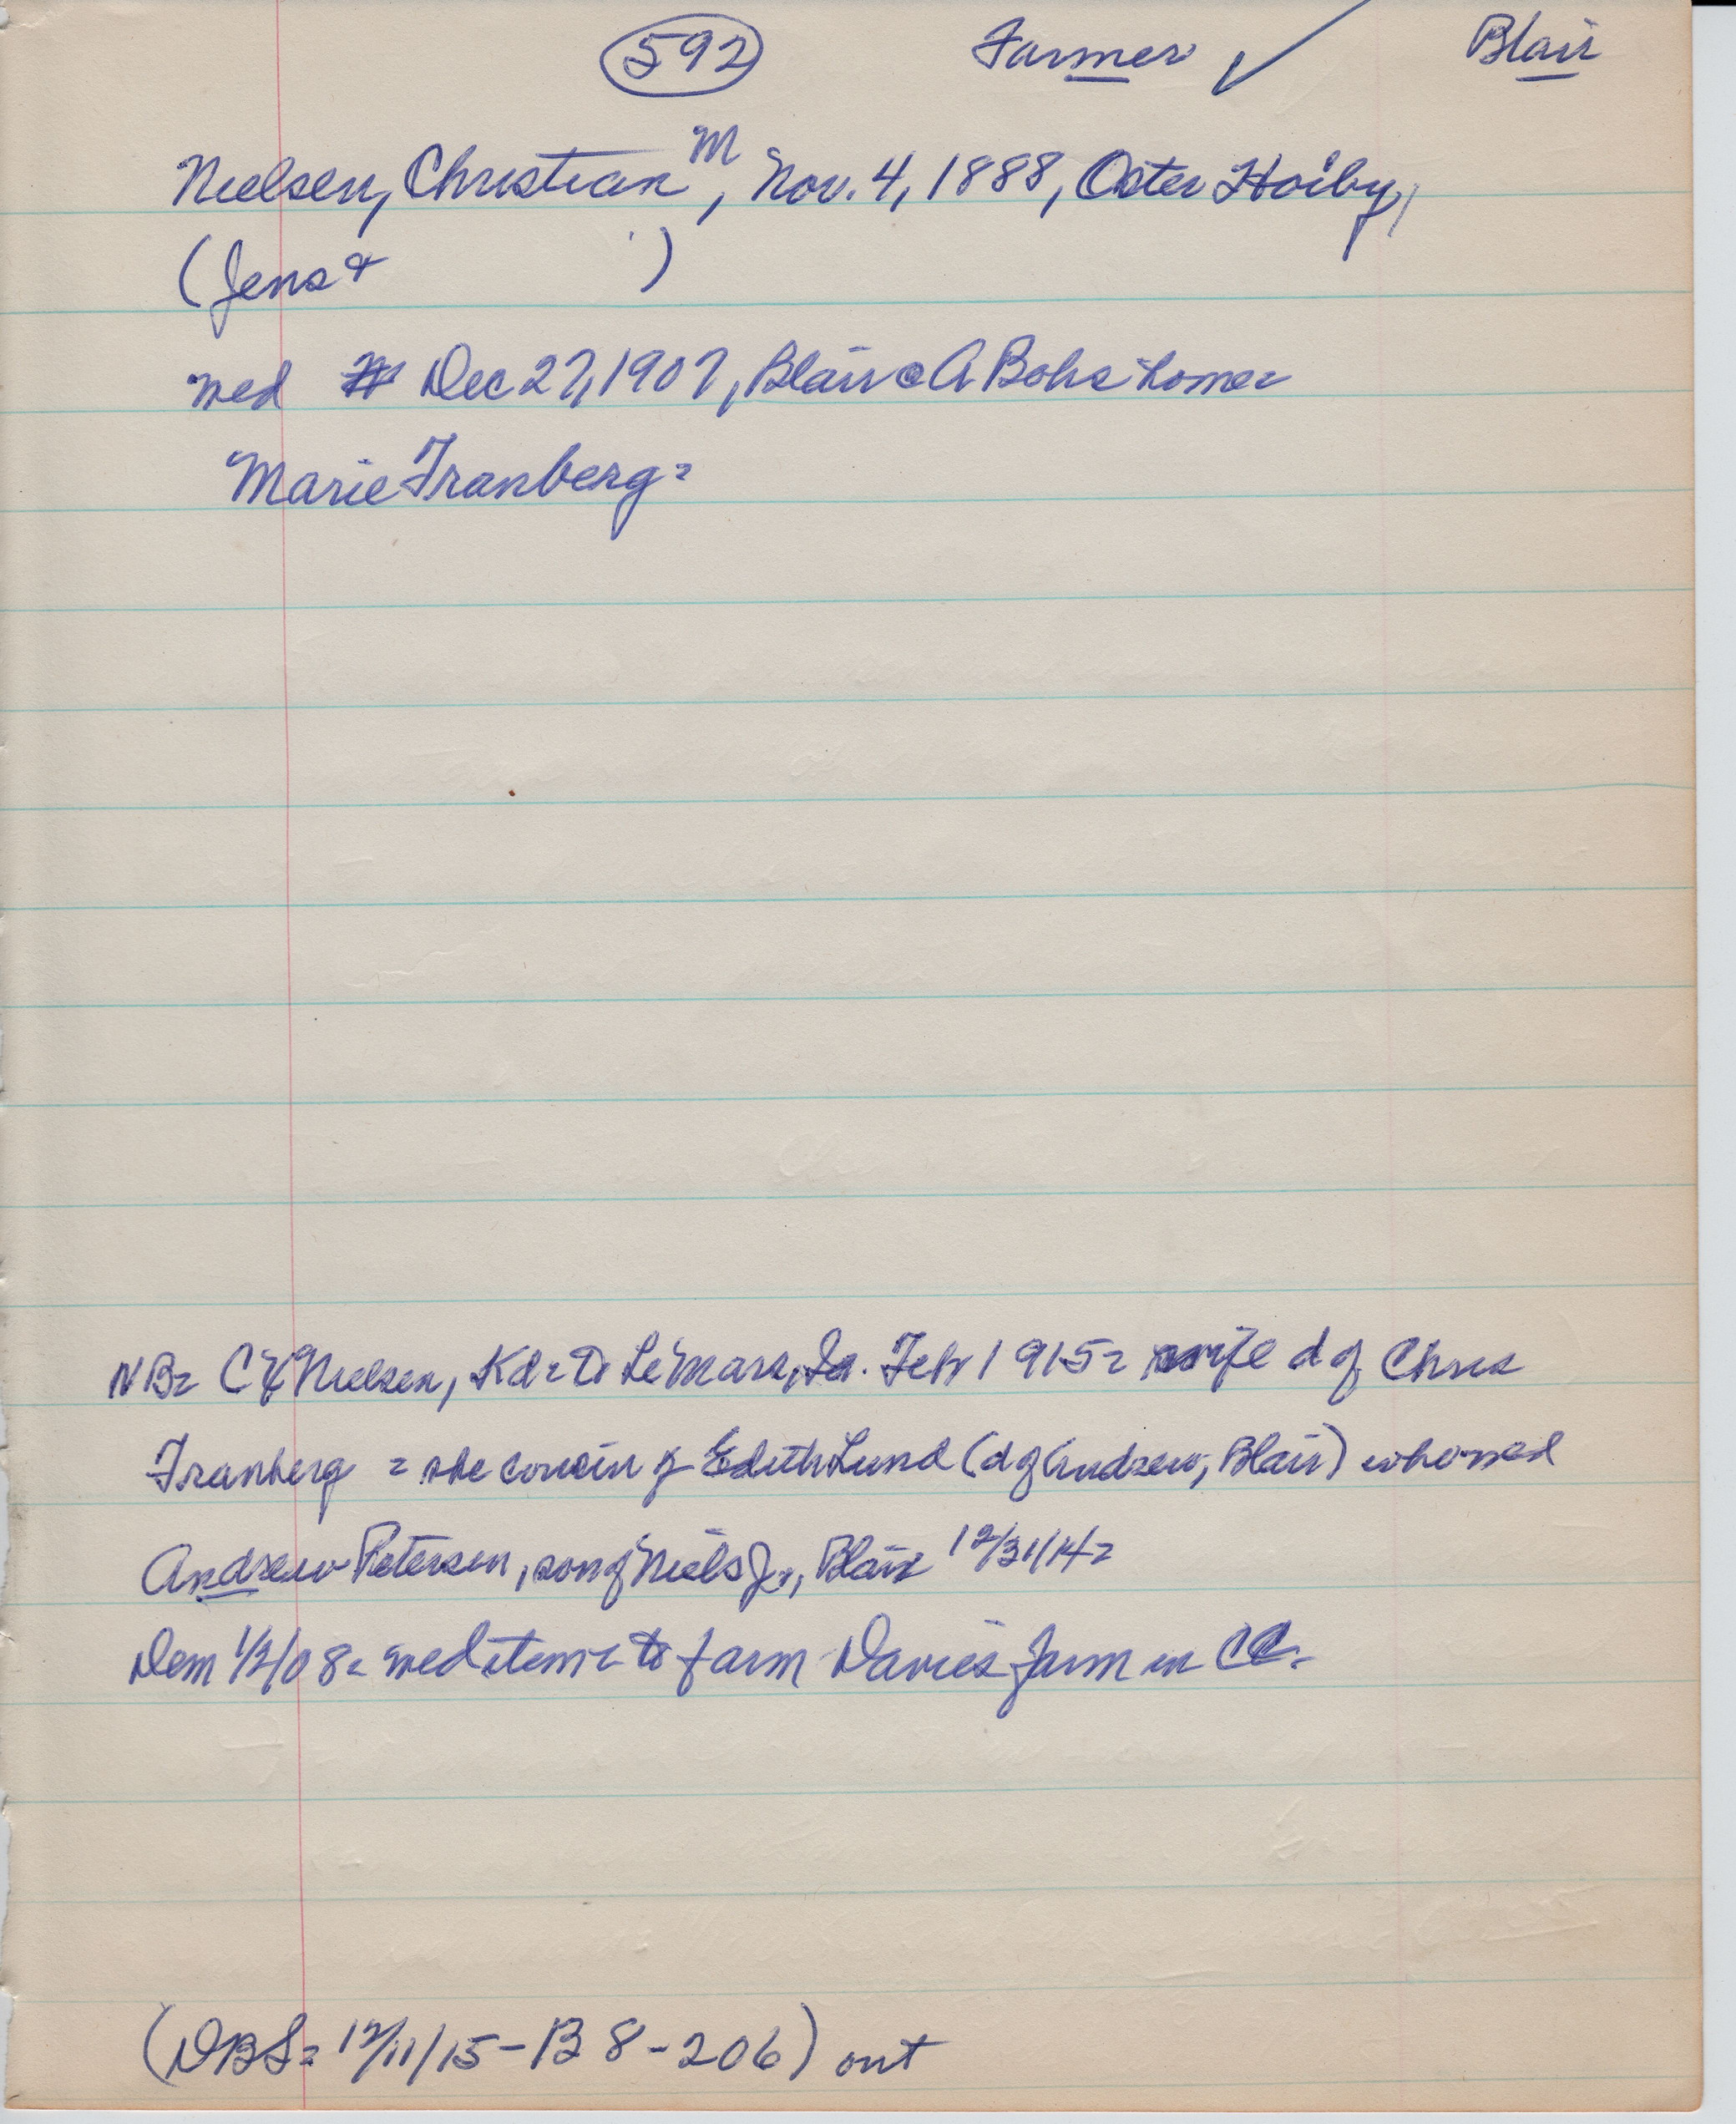 592 Farmer ✓ Blair
Nielsen, Christian M, Nov. 4, 1888, Oster Hoiby,
(Jens & )
wed Dec 27, 1907, Blair @ A Bohs home =
Marie Tranberg =
NB = C Nielsen, Kd = to Le Mars, Ia. Feb 1915 = wife d of Chris
Tranberg = she cousin of Edith Lund (d of Andrew, Blair) who wed
Andrew Petersen, son of Niels Jr., Blair 12/31/14 =
Dem 1/2/08 = wed item = to farm Davies farm in CC.
(DBS = 12/11/15 - B 8 - 206) out